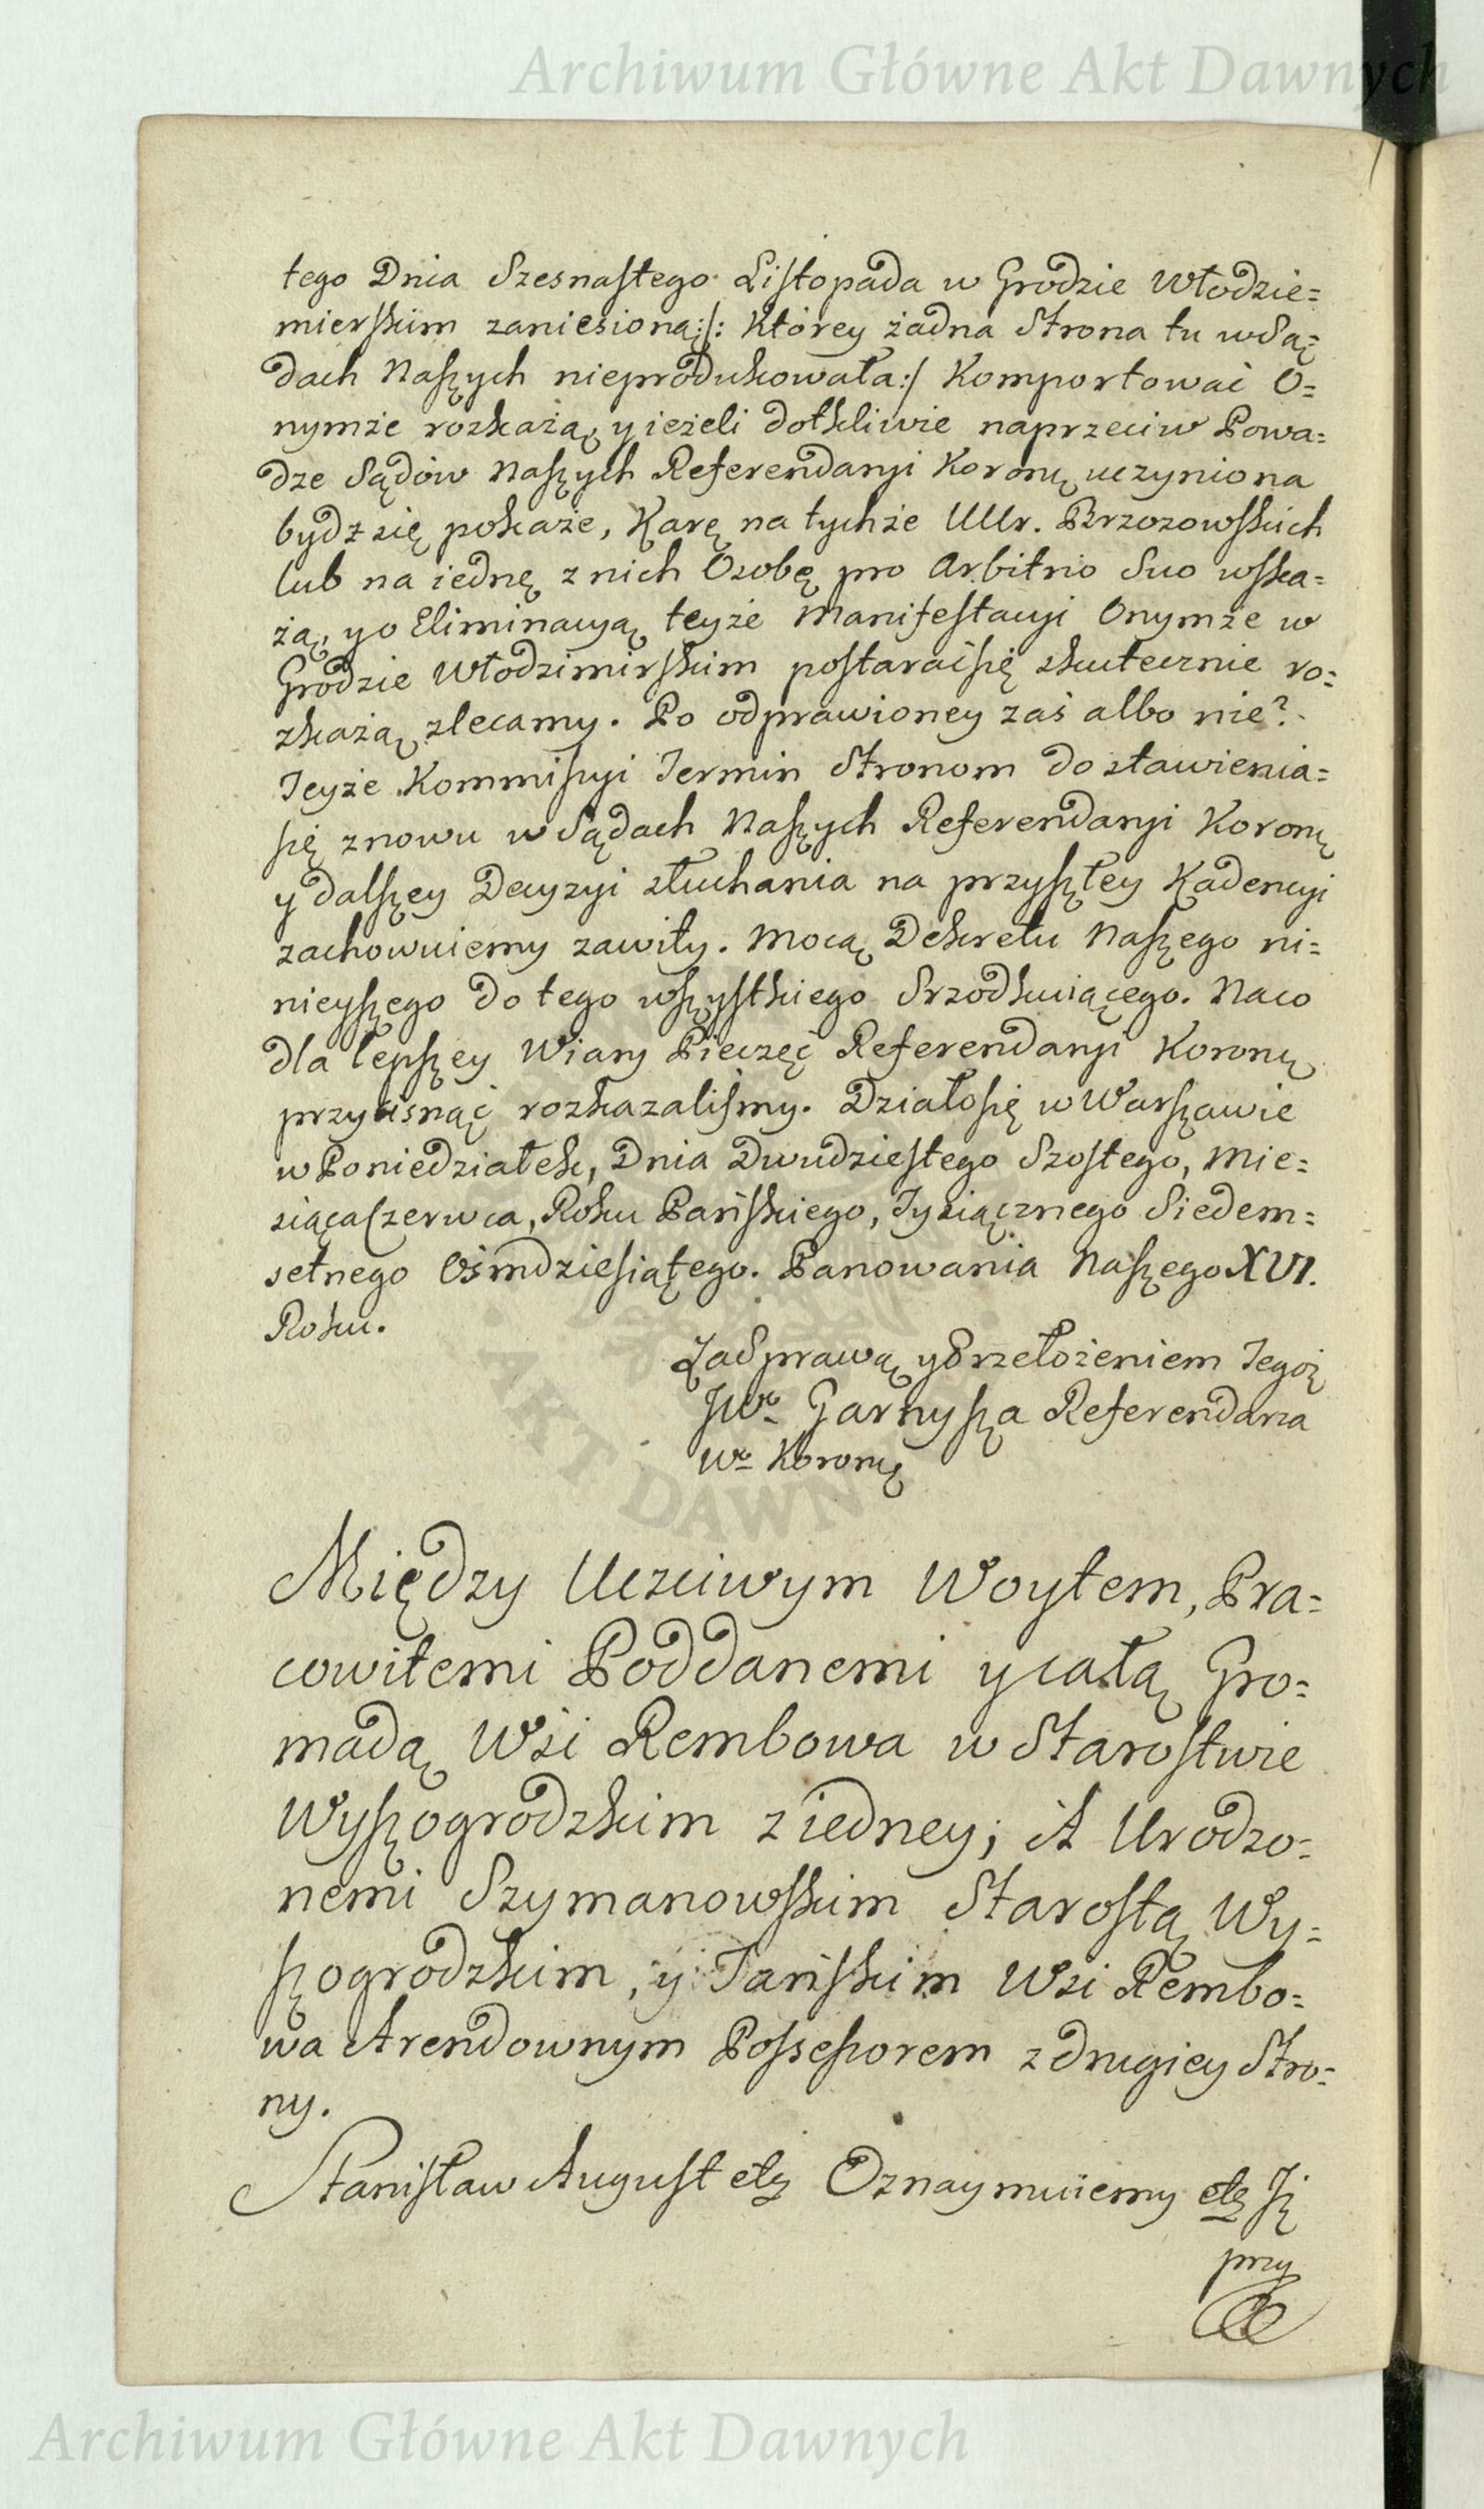 Archiwum Główne Akt Dawnych
tego Dnia Szesnastego Listopada w Grodzie Włodzie=
mierskim zaniesioną:/: Którey żadna Strona tu w Są=
dach Naszych nieprodukowała:/ Komportować O=
nymże rozkażą, y ieżeli dotkliwie naprzeciw Powa=
dze Sądów Naszych Referendaryi Koronę uczyniona
bydź się pokaże, Karę na tychże UUr. Brzozowskich
lub na iednę z nich Osobę pro Arbitrio Suo wska=
żą, y o Eliminacyą teyże Manifestacyi Onymże w
Grodzie Włodzimirskim postarać się skutecznie ro=
zkażą zlecamy. Po odprawioney zaś albo nie?
Teyże Kommissyi Termin Stronom do stawienia=
się znowu w Sądach Naszych Referendaryi Koronę
y dalszey Decyzyi słuchania na przyszłey Kadencyi
zachowuiemy zawity. Mocą Dekretu Naszego ni=
nieyszego do tego wszystkiego Srzodkuiącego. Na co
dla lepszey Wiary Pieczęć Referendaryi Koronę
przycisnąć rozkazaliśmy. Działo się w Warszawie
w Poniedziałek, Dnia Dwudziestego Szostego, Mie=
siąca Czerwca, Roku Pańskiego, Tysiącznego Siedem=
setnego Ośmdziesiątego. Panowania Naszego XVI.
Roku.
Za Sprawą y Przełożeniem Tegoż
JWo Garnysza Referendarza
Wo Koronę
Między Uczciwym Woytem, Pra=
cowitemi Poddanemi y całą Gro=
madą Wsi Rembowa w Starostwie
Wyszogrodzkim z iedney; A Urodzo=
nemi Szymanowskim Starostą Wy=
szogrodzkim, y Tańskim Wsi Rembo=
wa Arendownym Possessorem z drugiey Stro=
ny.
Stanisław August etc Oznaymuiemy etc Iż
przy
AKT DAWN
Archiwum Główne Akt Dawnych